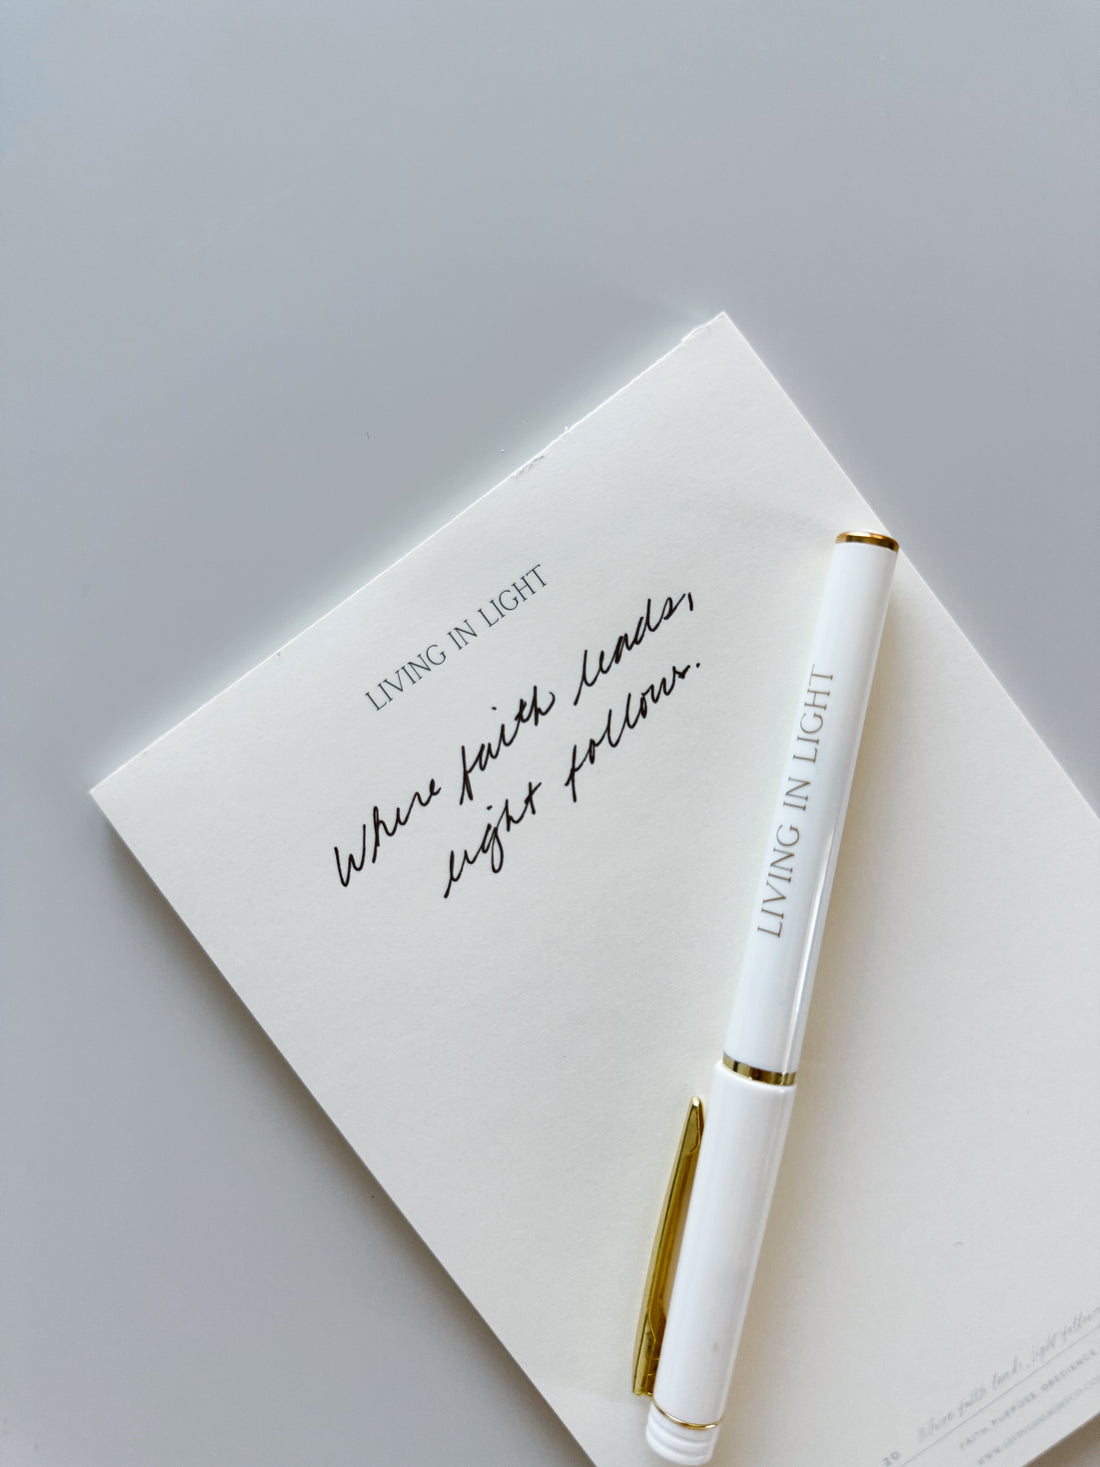 LIVING IN LIGHT
Where faith leads,
light follows.
LIVING IN LIGHT
Where faith leads, light follows
20
FAITH. PURPOSE. OBEDIENCE